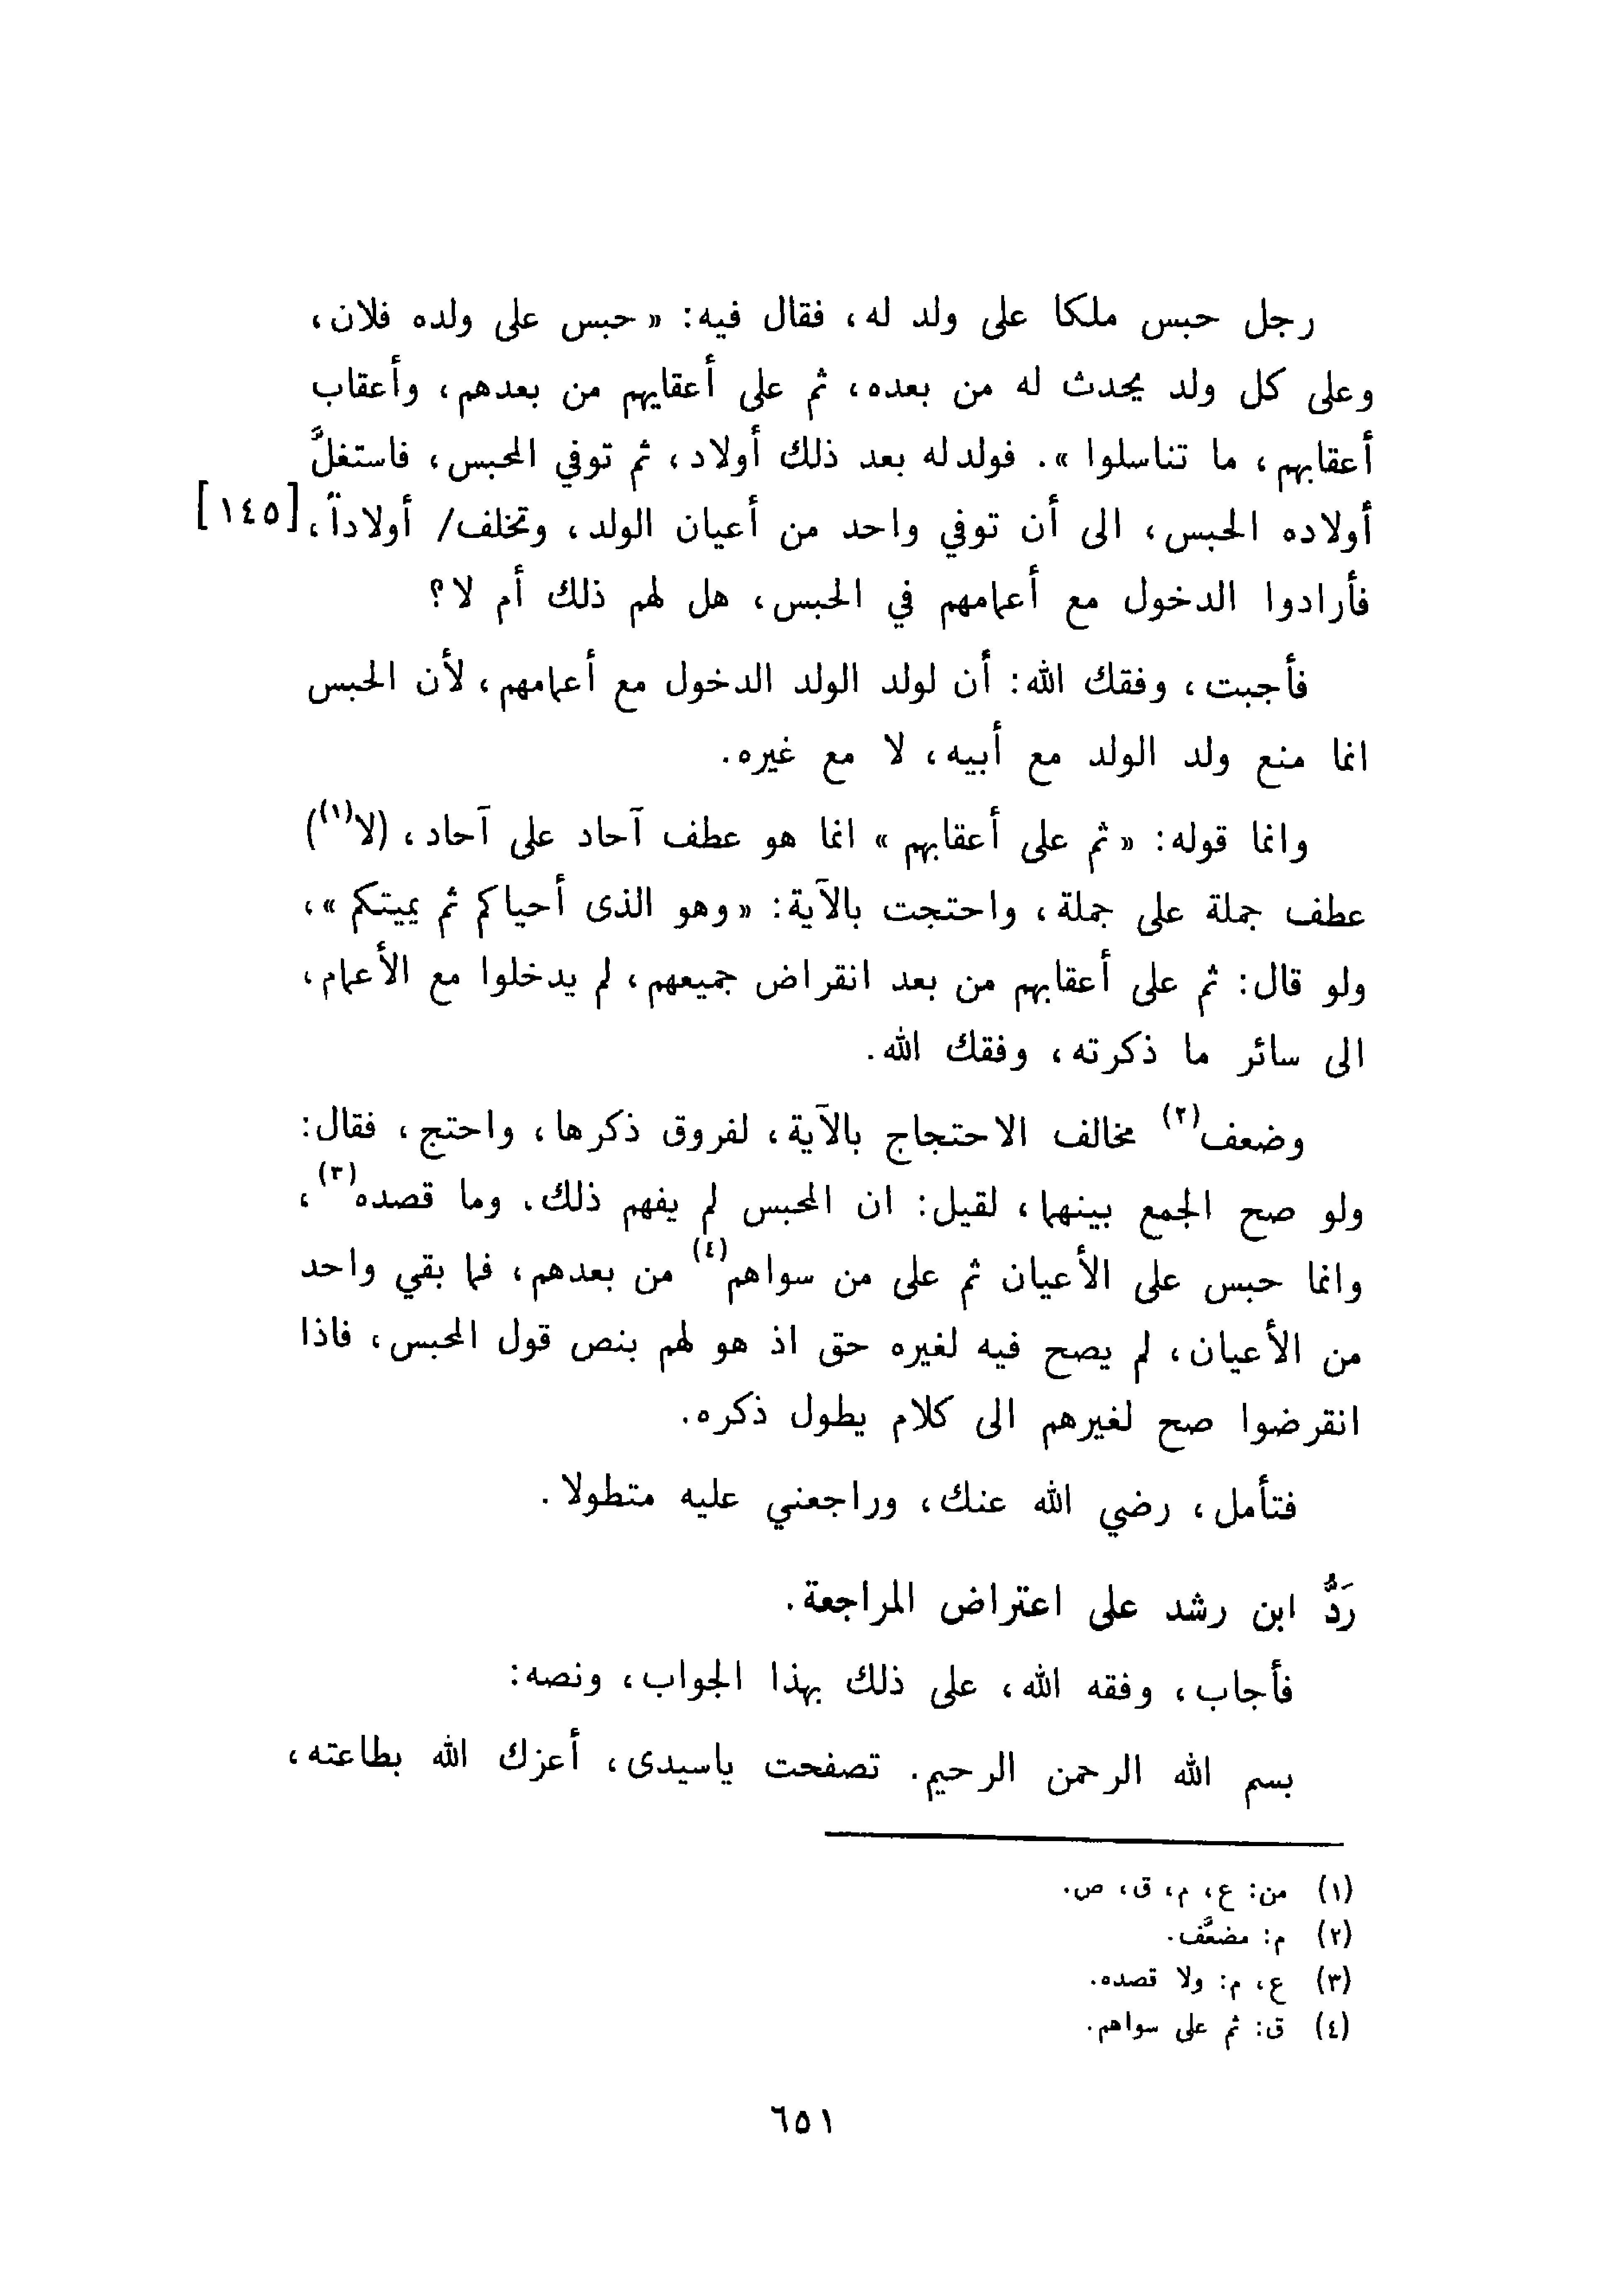 رجل حبس ملكا على ولد له، فقال فيه: «حبس على ولده فلان،
وعلى كل ولد يحدث له من بعده، ثم على أعقايهم من بعدهم، وأعقاب
أعقابهم، ما تناسلوا». فولد له بعد ذلك أولاد، ثم توفي المحبس، فاستغلَّ
أولاده الحبس، الى أن توفي واحد من أعيان الولد، وتخلف/ أولاداً، [١٤٥]
فأرادوا الدخول مع أعمامهم في الحبس، هل لهم ذلك أم لا؟
فأجبت، وفقك الله: أن لولد الولد الدخول مع أعمامهم، لأن الحبس
انما منع ولد الولد مع أبيه، لا مع غيره.
وانما قوله: «ثم على أعقابهم» انما هو عطف آحاد على آحاد، (لا(١))
عطف جملة على جملة، واحتجت بالآية: «وهو الذى أحياكم ثم يميتكم»،
ولو قال: ثم على أعقابهم من بعد انقراض جميعهم، لم يدخلوا مع الأعمام،
الى سائر ما ذكرته، وفقك الله.
وضعف(٢) مخالف الاحتجاج بالآية، لفروق ذكرها، واحتج، فقال:
ولو صح الجمع بينهما، لقيل: ان المحبس لم يفهم ذلك. وما قصده(٣)،
وانما حبس على الأعيان ثم على من سواهم(٤) من بعدهم، فما بقي واحد
من الأعيان، لم يصح فيه لغيره حق اذ هو لهم بنص قول المحبس، فاذا
انقرضوا صح لغيرهم الى كلام يطول ذكره.
فتأمل، رضي الله عنك، وراجعني عليه متطولا.
رَدُّ ابن رشد على اعتراض المراجعة.
فأجاب، وفقه الله، على ذلك بهذا الجواب، ونصه:
بسم الله الرحمن الرحيم. تصفحت ياسيدى، أعزك الله بطاعته،
(١) من: ع، م، ق، ص.
(٢) م: مضعَّف.
(٣) ع، م: ولا قصده.
(٤) ق: ثم على سواهم.
٦٥١